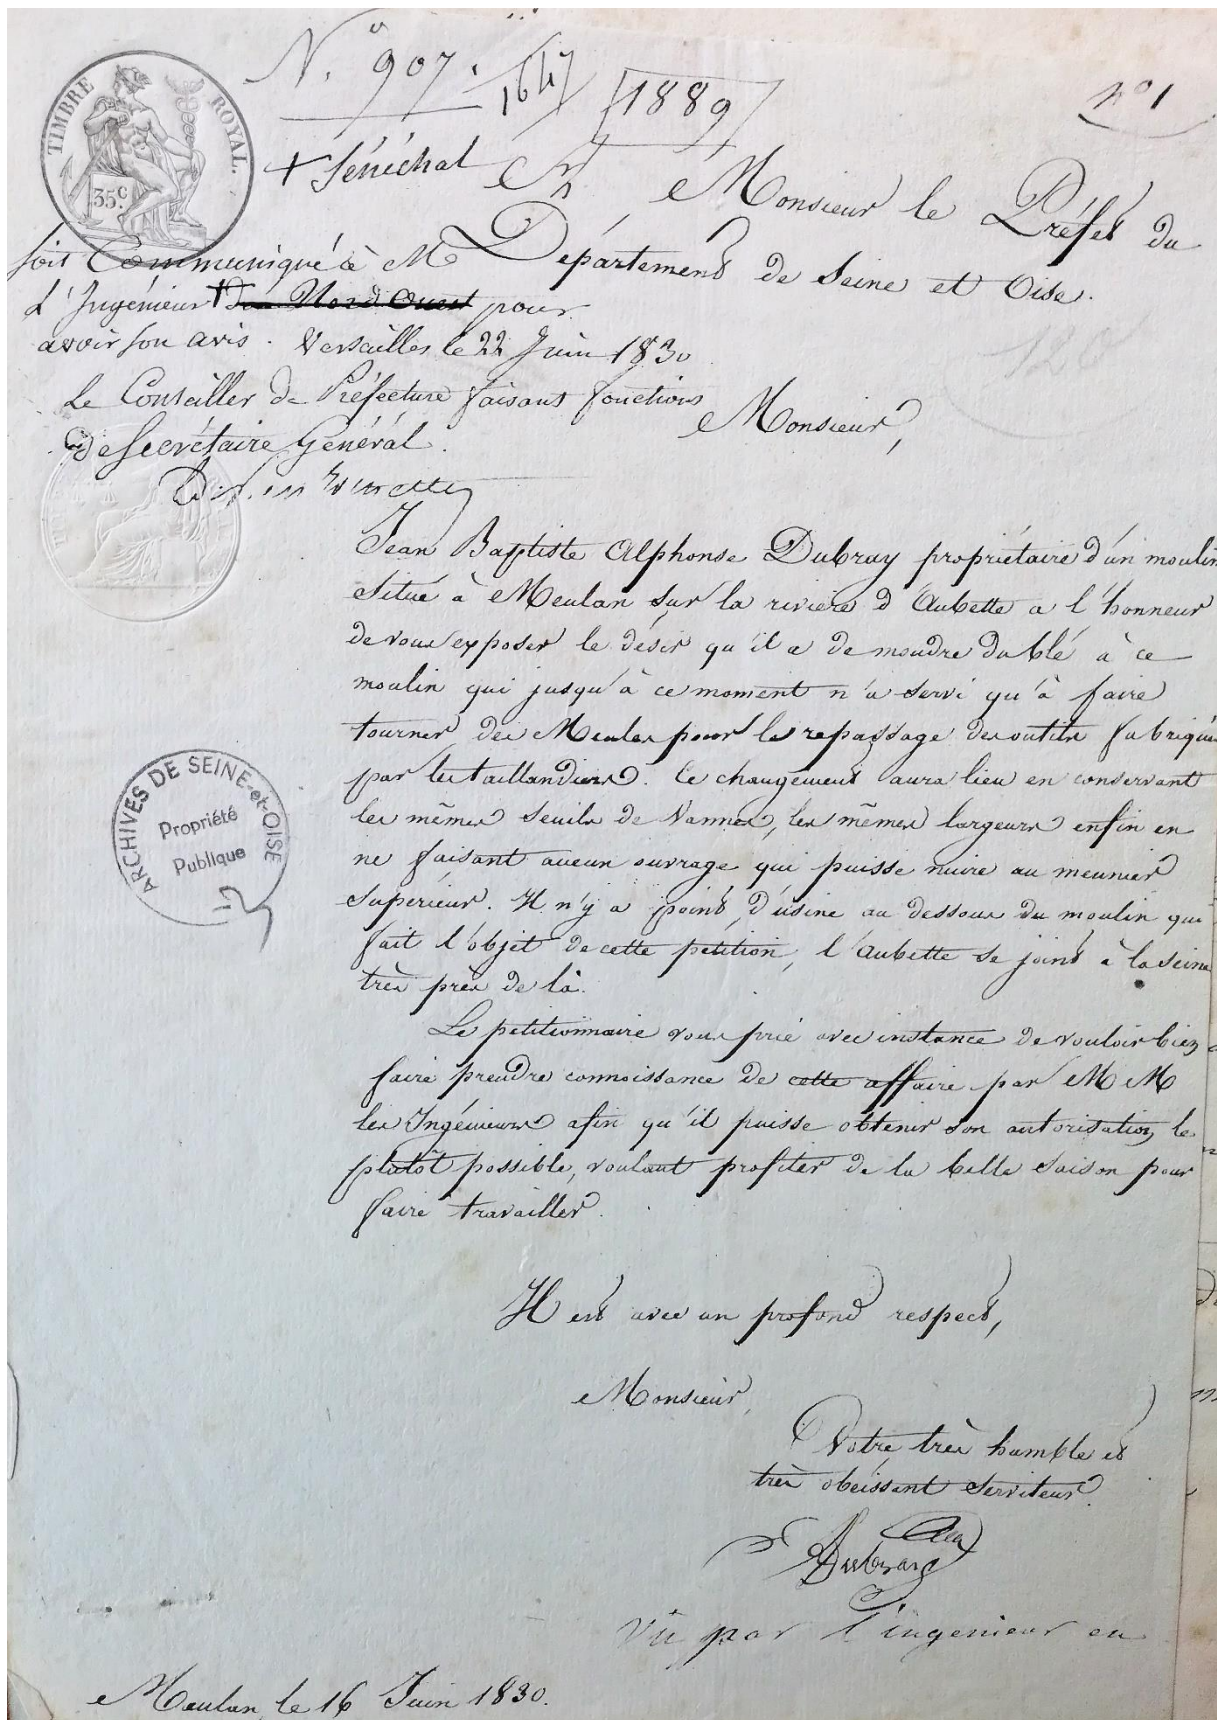 N.º 907.
1647
1889
nº 1
TIMBRE ROYAL.
35c
+ Sénéchal
A Monsieur le Préfet du
Département de Seine et Oise.
Soit Communiqué à M
L'Ingénieur + du Nord Ouest pour
avoir son avis. Versailles le 22 Juin 1830
Le Conseiller de Préfecture faisant fonctions
de Secrétaire Général.
Monsieur,
Jean Baptiste Alphonse Dubray propriétaire d'un moulin
situé à Meulan sur la rivière d'Aubette a l'honneur
de vous exposer le désir qu'il a de moudre du blé à ce
moulin qui jusqu'à ce moment n'a servi qu'à faire
tourner des Meules pour le repassage des outils fabriqués
par les taillandiers. Ce changement aura lieu en conservant
les mêmes seuils de Vannes, les mêmes largeurs enfin en
ne faisant aucun ouvrage qui puisse nuire au meunier
supérieur. Il n'y a point d'usine au dessous du moulin qui
fait l'objet de cette pétition, l'Aubette se joint à la Seine
très près de là.
Le petitionnaire vous prie avec instance de vouloir bien
faire prendre connoissance de cette affaire par M M
les Ingénieurs afin qu'il puisse obtenir son autorisation le
plutôt possible, voulant profiter de la belle saison pour
faire travailler.
ARCHIVES DE SEINE-et-OISE
Propriété
Publique
Il est avec un profond respect,
Monsieur,
Votre très humble et
très obéissant serviteur.
Dubray
Vu par l'ingenieur en
Meulan, le 16 Juin 1830.